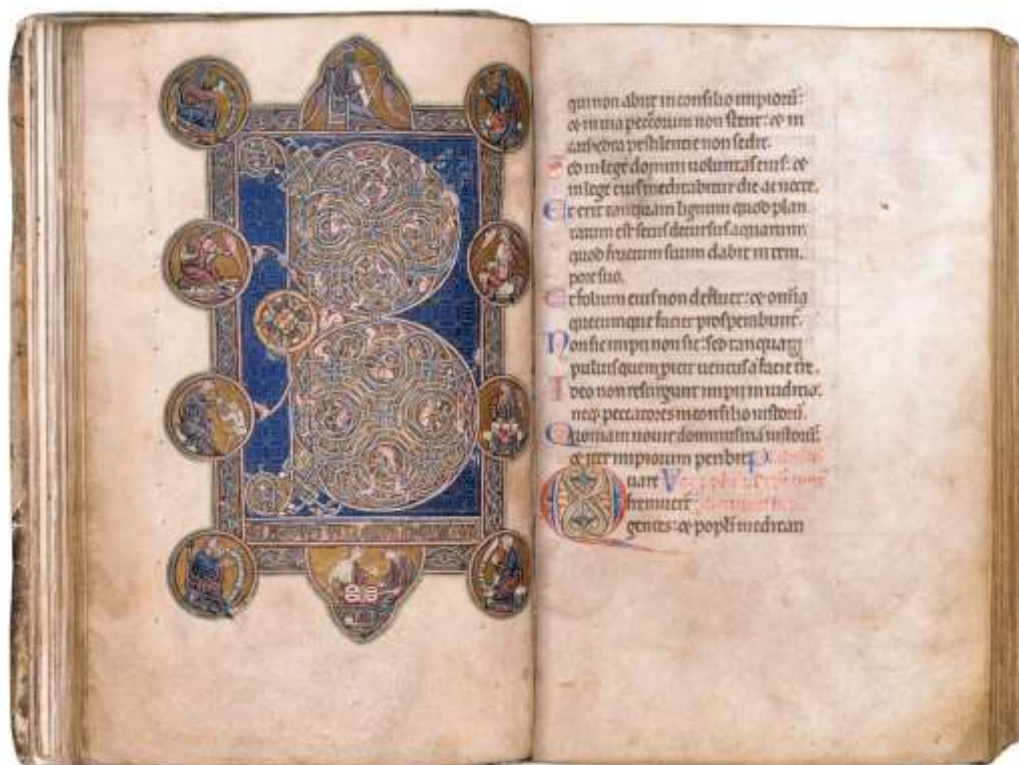 qui non abiit in consilio impiorū:
& in uia peccatorum non stetit: & in
cathedra pestilentie non sedit.
Sed in lege domini uoluntas eius: &
in lege eius meditabitur die ac nocte.
Et erit tanquam lignum quod plan
tatum est secus decursus aquarum:
quod fructum suum dabit in tem
pore suo.
Et folium eius non defluet: & omīa
quecumque faciet prosperabunt.
Non sic impii non sic: sed tanquam
puluis quem proicit uentus a facie tre.
Ideo non resurgunt impii in iuditio:
neq; peccatores in consilio iustorū.
Quoniam nouit dominus uiā iustorū:
& iter impiorum peribit
Quare
fremuert
gentes: & popli meditati